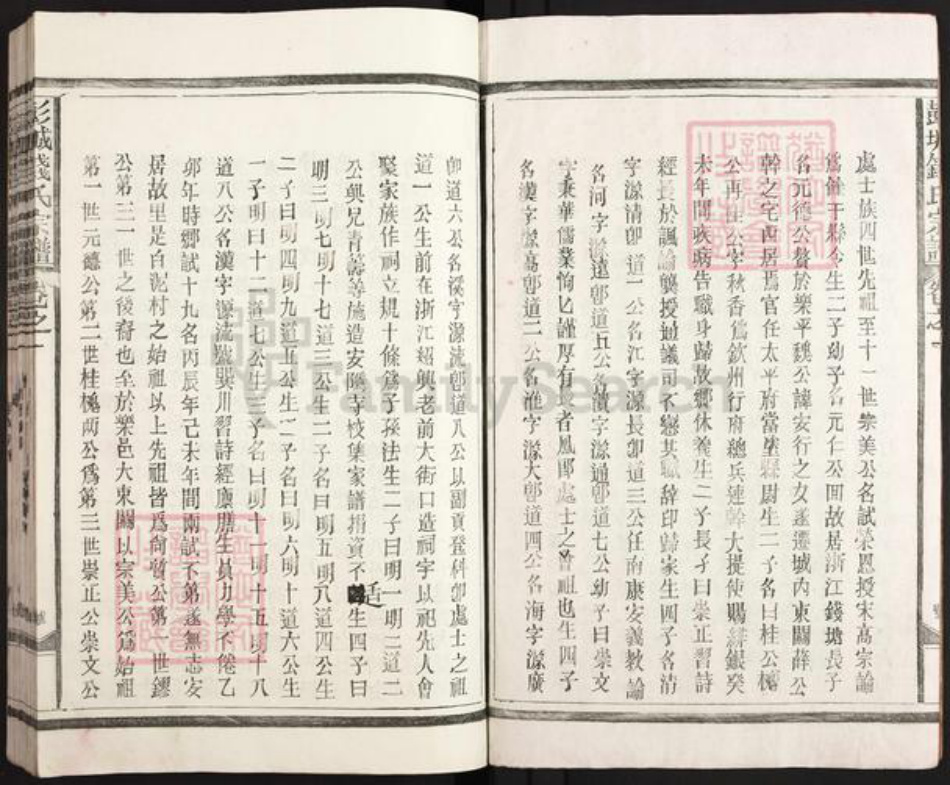 處士族四世先祖至十一世崇美公名試榮恩授宋高宗諭
爲餘干縣令生二子幼子名元仁公回故居浙江錢塘長子
名元德公贅於樂平魏公諱安行之女遂遷城內東關薛公
幹之宅西居焉官任太平府當塗縣尉生二子名曰桂公槐
公再桂公字秋香爲欽州行府總兵連幹大提使賜緋銀癸
未年間疾病告職身歸故鄉休養生二子長子曰崇正習詩
經長於諷諭襲授通議司不戀其職辭印歸家生四子名清
字源清卽道一公名江字源長卽道三公任南康安義教諭
名河字源遠卽道五公名濱字源通卽道七公幼子曰崇文
字秉華儒業恂恂謹厚有長者風卽處士之曾祖也生四子
名漢字源高卽道二公名淮字源大卽道四公名海字源廣
卽道六公名深字源流卽道八公以副貢登科卽處士之祖
道一公生前在浙江紹興老前大街口造祠宇以祀先人會
聚家族作祠立規十條爲子孫法生二子曰明一明二道二
公與兄青籌等施造安隱寺校集家譜捐資不 适 生四子曰
明三明七明十七道三公生二子名曰明五明八道四公生
二子曰明四明九道五公生二子名曰明六明十道六公生
一子明曰十二道七公生三子名曰明十一明十五明十八
道八公名漢字源流號巽川習詩經廩膳生員力學不倦乙
卯年時鄉試十九名丙辰年己未年間兩試不第遂無志安
居故里是白泥村之始祖以上先祖皆爲尙質公第一世鏐
公第三一世之後裔也至於樂邑大東關以宗美公爲始祖
第一世元德公第二世桂槐兩公爲第三世崇正公崇文公
彭城錢氏宗譜 卷之一
彭城錢氏宗譜 卷之一
FamilySearch